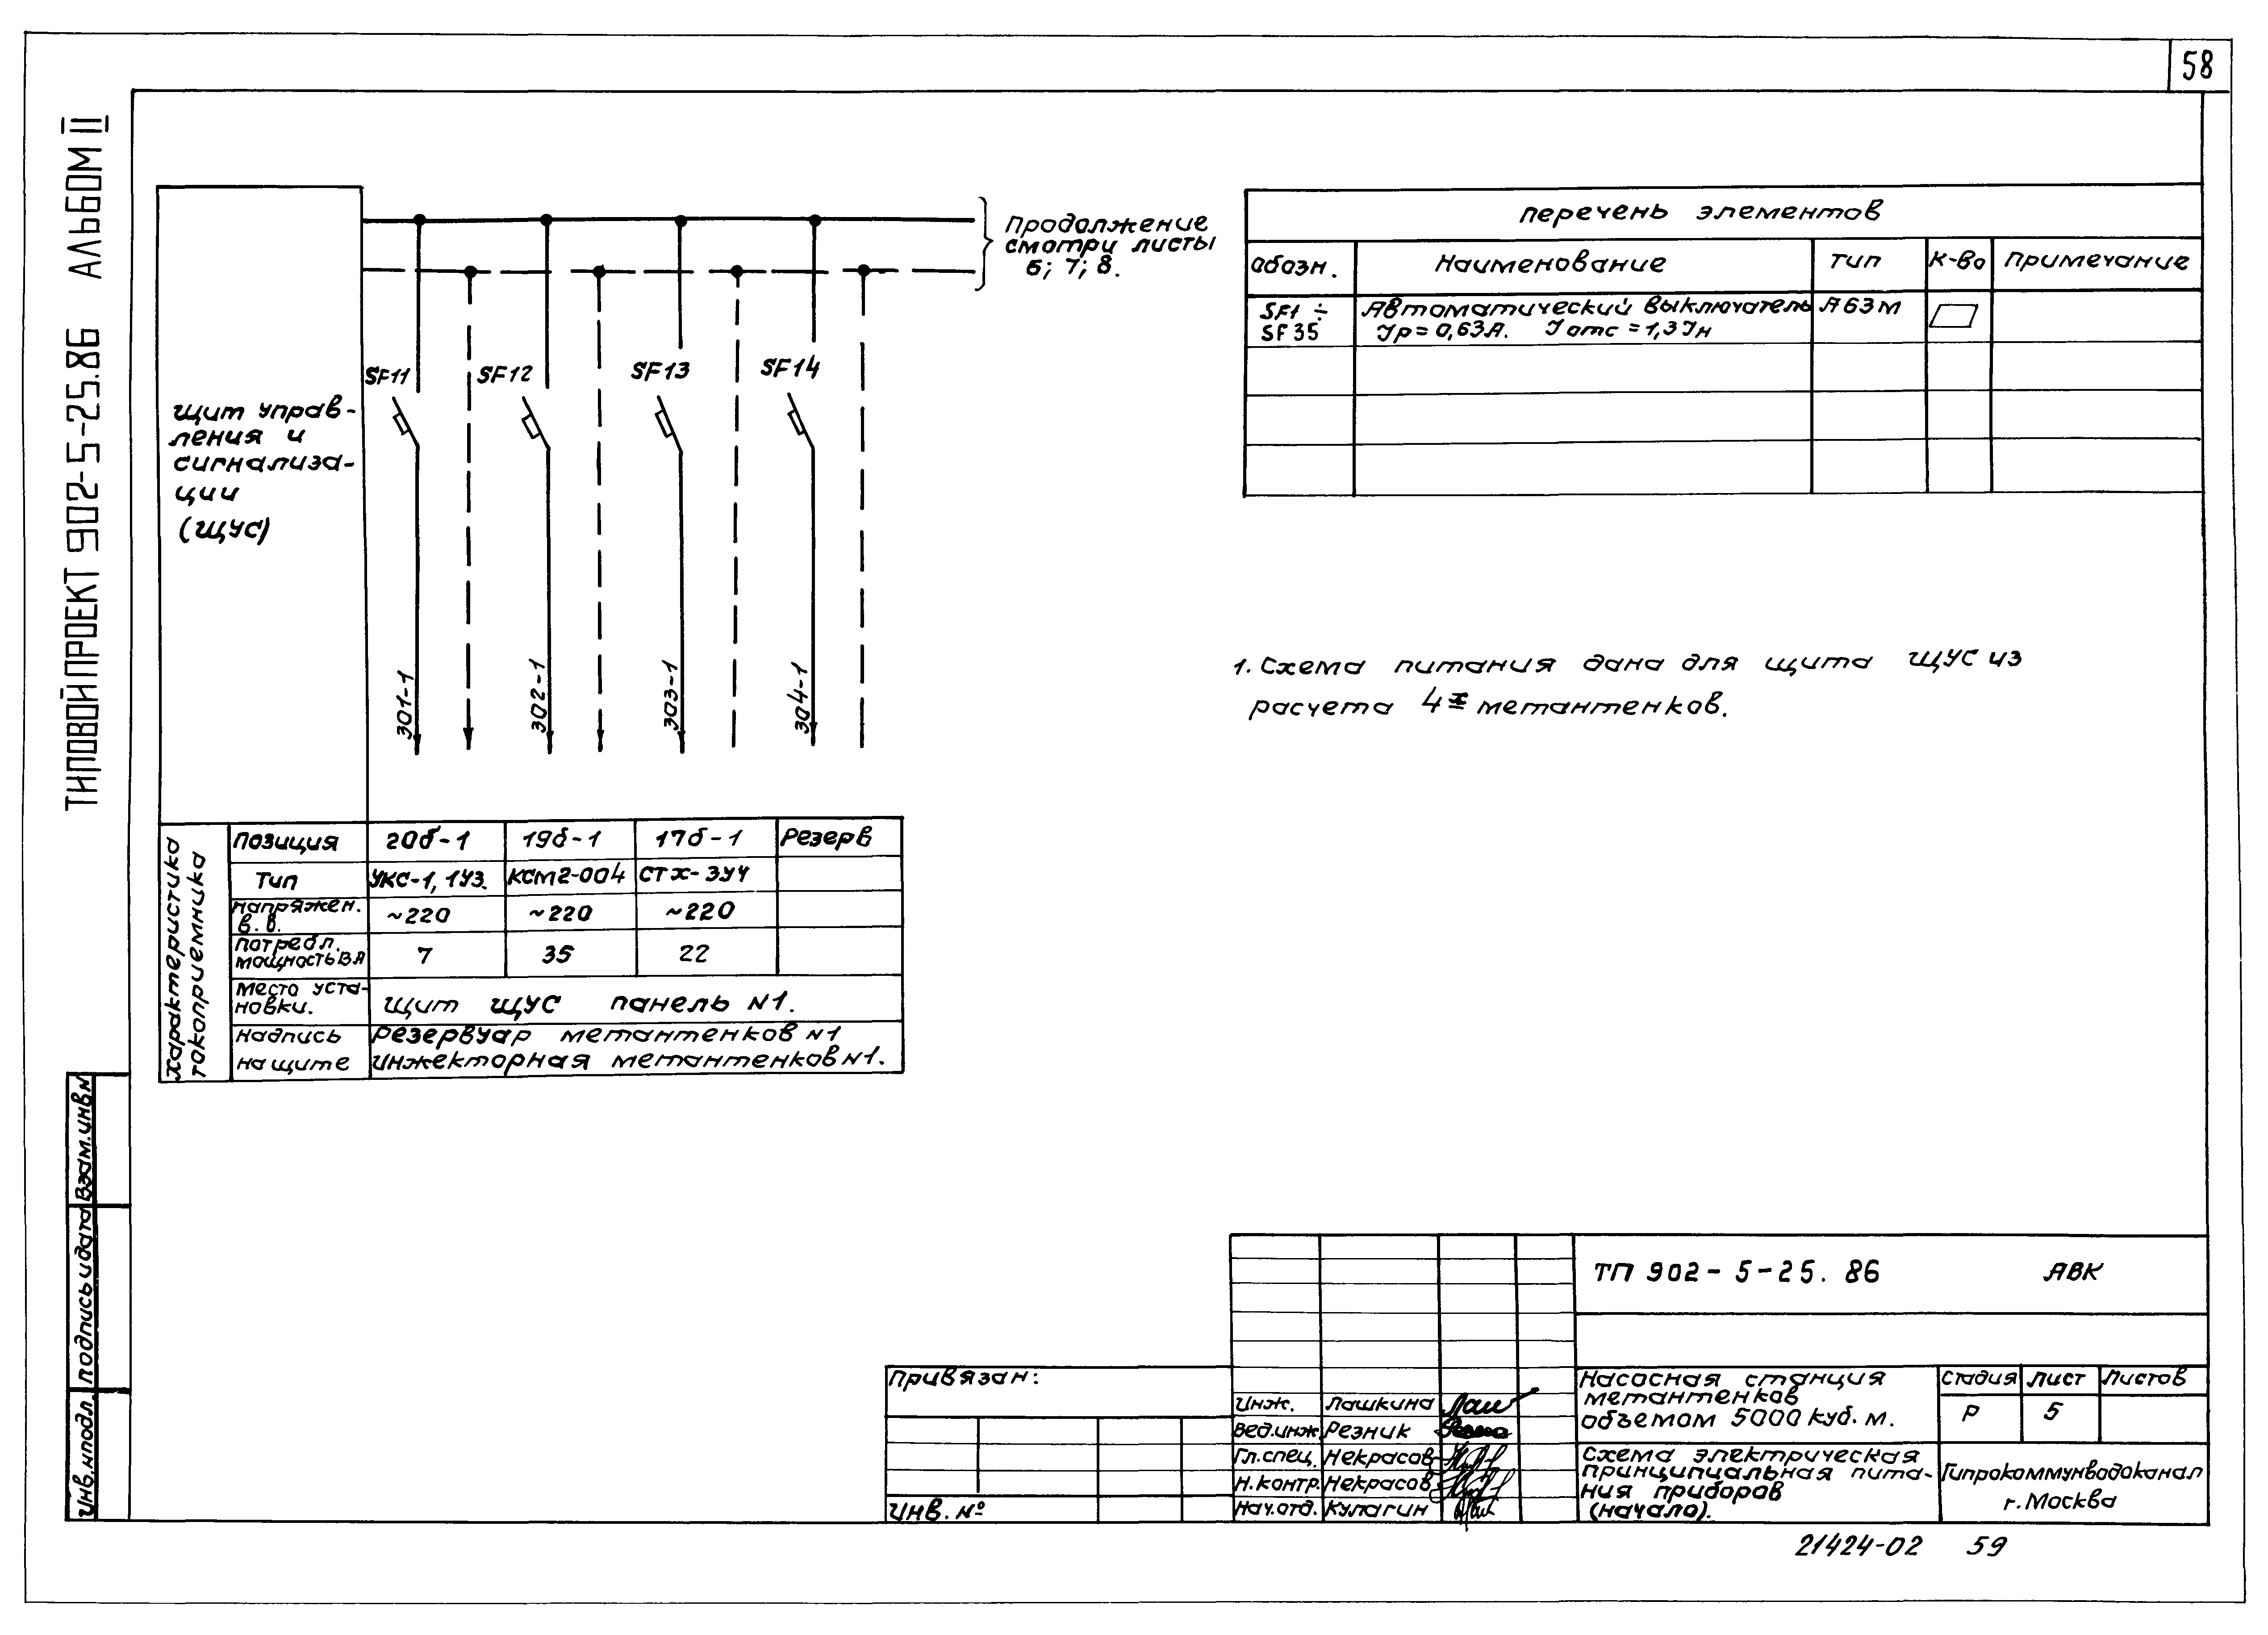 58
ТИПОВОЙ ПРОЕКТ 902-5-25.86 АЛЬБОМ II
Щит управ-
ления и
сигнализа-
ции
(ЩУС)
Продолжение
смотри листы
6; 7; 8.
SF11
SF12
SF13
SF14
301-1
302-1
303-1
304-1
Перечень элементов
Обозн. Наименование Тип К-во Примечание
SF1 ÷ Автоматический выключатель А63М
SF35 Iр = 0,63А. Iотс = 1,3Iн
1. Схема питания дана для щита ЩУС из
расчета 4х метантенков.
Характеристика
токоприемника
Позиция 20б-1 19б-1 17б-1 Резерв
Тип УКС-1, 1УЗ. КСМ2-004 СТХ-3У4
Напряжен. ~220 ~220 ~220
В.В.
Потребл. 7 35 22
мощность ВА
Место уста-
новки. Щит ЩУС панель N1.
Надпись Резервуар метантенков N1
на щите Инжекторная метантенков N1.
Взам.инв.N
Подпись и дата
Инв.N подл.
Привязан:
Инв. №
ТП 902-5-25.86 АВК
Инж. Лашкина
Вед.инж. Резник
Гл.спец. Некрасов
Н.контр. Некрасов
Нач.отд. Кулагин
Насосная станция
метантенков
объемом 5000 куб. м.
Стадия Лист Листов
Р 5
Схема электрическая
принципиальная пита-
ния приборов
(начало).
Гипрокоммунводоканал
г. Москва
21424-02 59